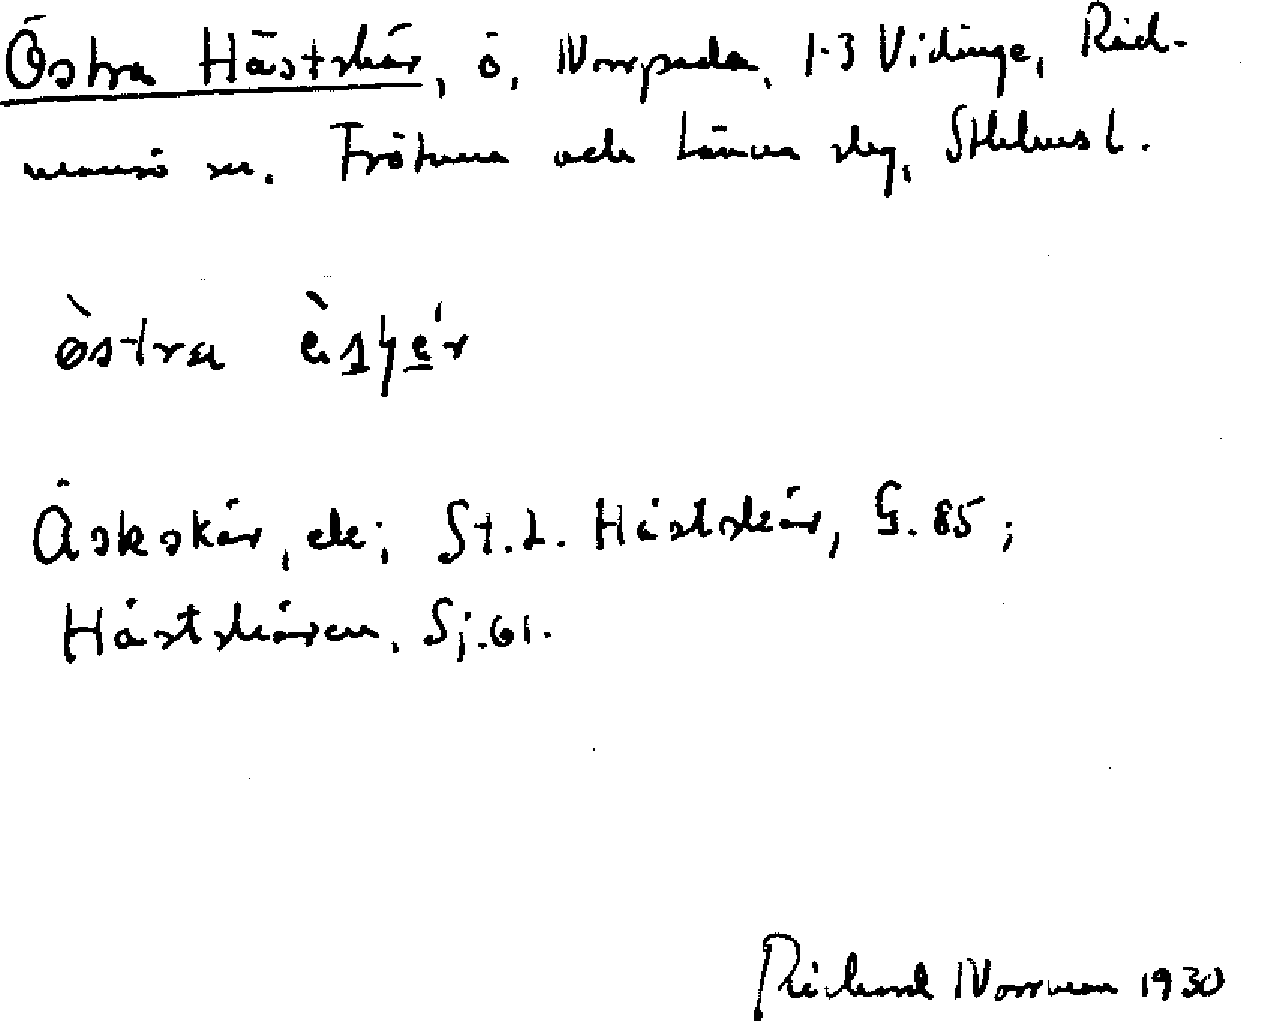 Östra Hästskär, ö, Norrpada, 1-3 Vidinge, Räd-
mansö sn. Frötuna och Länna slg, Sthlms l.
òstra
Äskskär, ek; St. L. Hästskär, G. 85;
Hästskären, Sj. 61.
Richard Norrman 1930